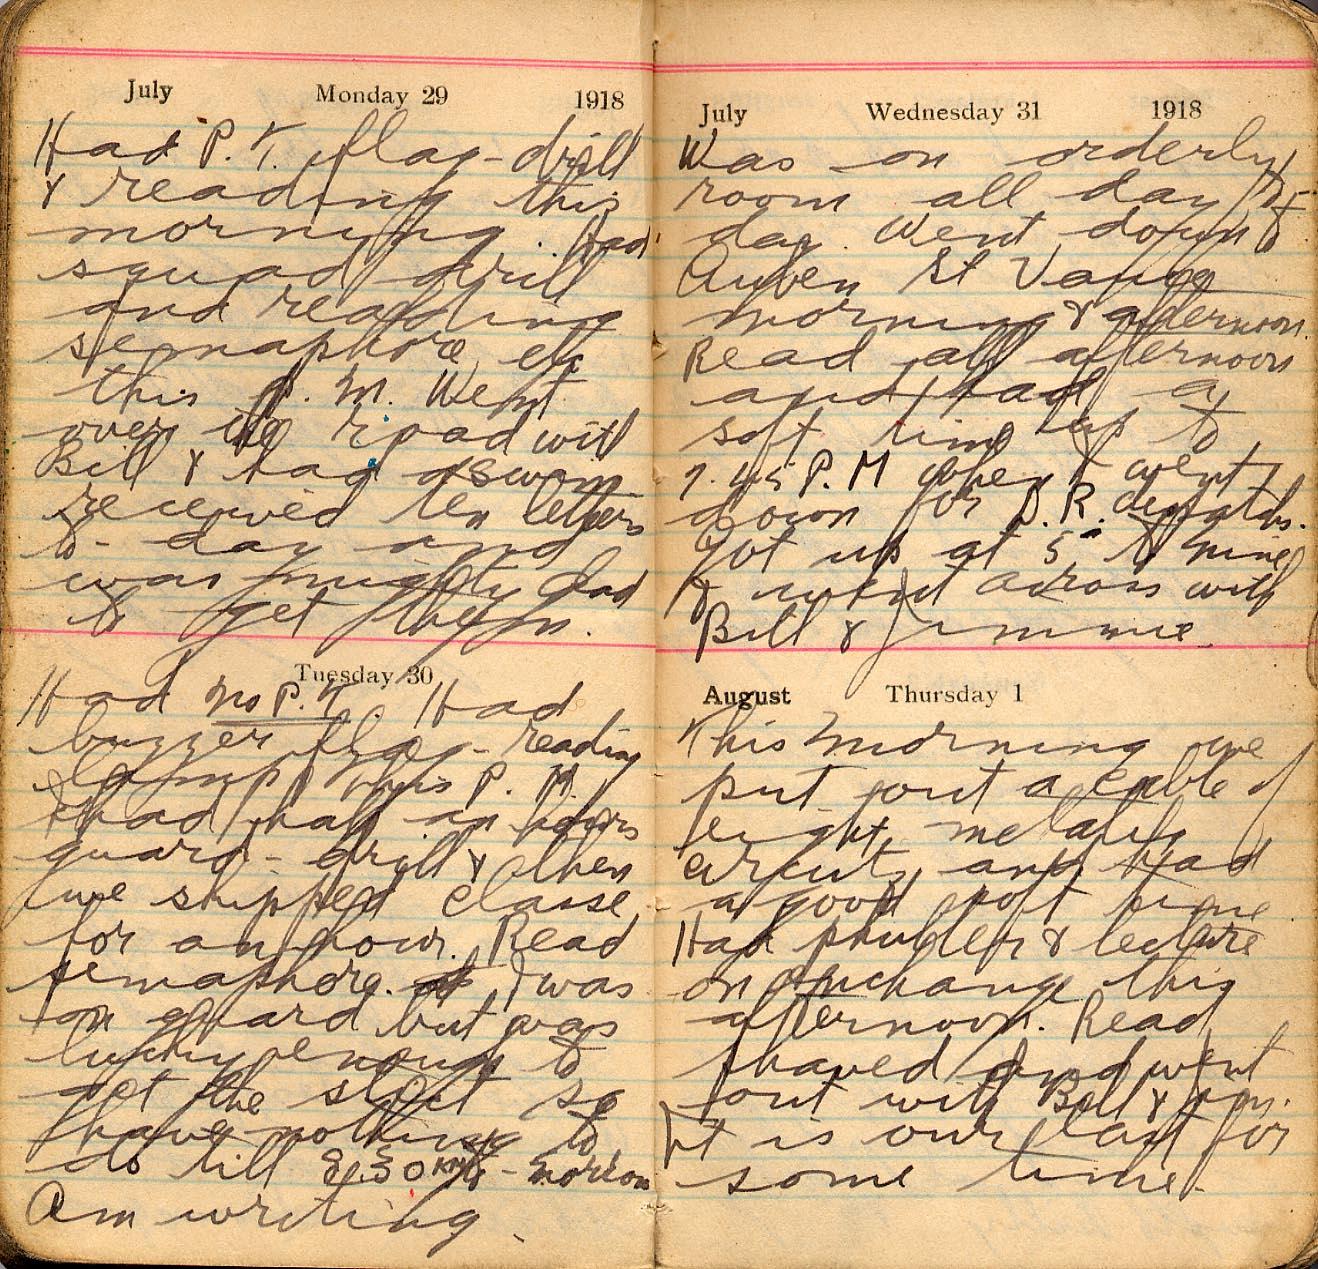 July Monday 29 1918
Had P.T. flag-drill
& reading this
morning. Had
squad drill
and reading
semaphore etc
this P.M. Went
over the road with
Bill & had a swim
received ten letters
to-day and
was mighty glad
to get them.
Tuesday 30
Had no P.T. Had
buzzer flag-reading
lamp this P.M.
& had half an hours
guard-drill & then
we skipped classe
for an hour. Read
semaphore. I was
on guard but was
lucky enough to
get the so
have nothing to
do till 8.30 to-morrow
Am writing.
July Wednesday 31 1918
Was on orderly
room all day to-
day. Went down to
St
morning & afternoon.
Read all afternoon
and had a
soft time up to
7.45 P.M when I went
down for D.R.
Got up at 5 to nine
& went across with
Bill & Jimmie.
August Thursday 1
This morning we
put out a cable of
eight metallic
circuits and had
a good soft time
Had & lecture
on this
afternoon. Read
shaved and went
out with Bill & Jim.
It is our last for
some time.